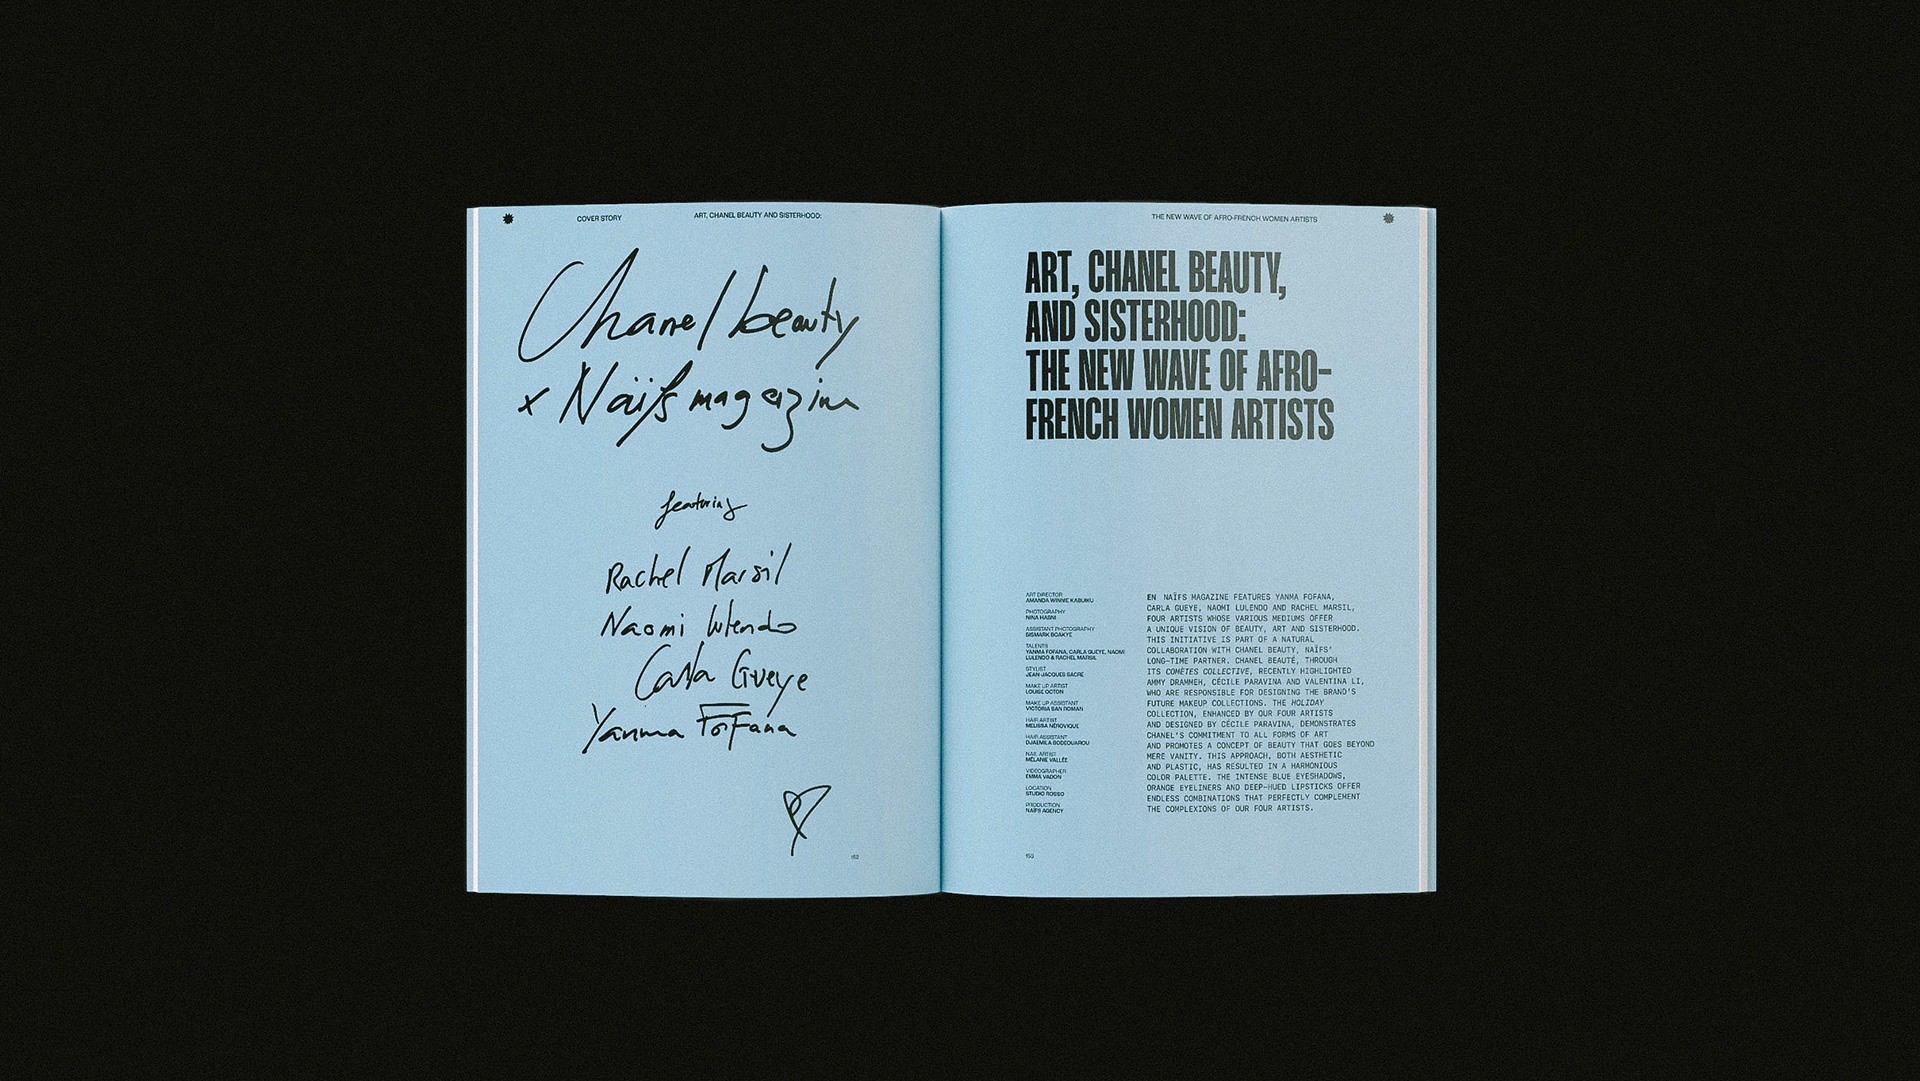 COVER STORY
ART, CHANEL BEAUTY AND SISTERHOOD:
Chanel beauty
x Naïfs magazine
featuring
Rachel Marsil
Naomi Lulendo
Carla Gueye
Yanma Fofana
152
THE NEW WAVE OF AFRO-FRENCH WOMEN ARTISTS
ART, CHANEL BEAUTY,
AND SISTERHOOD:
THE NEW WAVE OF AFRO-
FRENCH WOMEN ARTISTS
ART DIRECTOR
AMANDA WINNIE KABUIKU
PHOTOGRAPHY
NINA HASNI
ASSISTANT PHOTOGRAPHY
BISMARK BOAKYE
TALENTS
YANMA FOFANA, CARLA GUEYE, NAOMI
LULENDO & RACHEL MARSIL
STYLIST
JEAN-JACQUES SACRÉ
MAKE UP ARTIST
LOUISE OCTON
MAKE UP ASSISTANT
VICTORIA SAN ROMAN
HAIR ARTIST
MELISSA NÉROVIQUE
HAIR ASSISTANT
DJAEMILA
NAIL ARTIST
MÉLANIE VALLÉE
VIDEOGRAPHER
EMMA VADON
LOCATION
STUDIO ROSSO
PRODUCTION
NAÏFS AGENCY
EN NAÏFS MAGAZINE FEATURES YANMA FOFANA,
CARLA GUEYE, NAOMI LULENDO AND RACHEL MARSIL,
FOUR ARTISTS WHOSE VARIOUS MEDIUMS OFFER
A UNIQUE VISION OF BEAUTY, ART AND SISTERHOOD.
THIS INITIATIVE IS PART OF A NATURAL
COLLABORATION WITH CHANEL BEAUTY, NAÏFS'
LONG-TIME PARTNER. CHANEL BEAUTÉ, THROUGH
ITS COMÈTES COLLECTIVE, RECENTLY HIGHLIGHTED
AMMY DRAMMEH, CÉCILE PARAVINA AND VALENTINA LI,
WHO ARE RESPONSIBLE FOR DESIGNING THE BRAND'S
FUTURE MAKEUP COLLECTIONS. THE HOLIDAY
COLLECTION, ENHANCED BY OUR FOUR ARTISTS
AND DESIGNED BY CÉCILE PARAVINA, DEMONSTRATES
CHANEL'S COMMITMENT TO ALL FORMS OF ART
AND PROMOTES A CONCEPT OF BEAUTY THAT GOES BEYOND
MERE VANITY. THIS APPROACH, BOTH AESTHETIC
AND PLASTIC, HAS RESULTED IN A HARMONIOUS
COLOR PALETTE. THE INTENSE BLUE EYESHADOWS,
ORANGE EYELINERS AND DEEP-HUED LIPSTICKS OFFER
ENDLESS COMBINATIONS THAT PERFECTLY COMPLEMENT
THE COMPLEXIONS OF OUR FOUR ARTISTS.
153